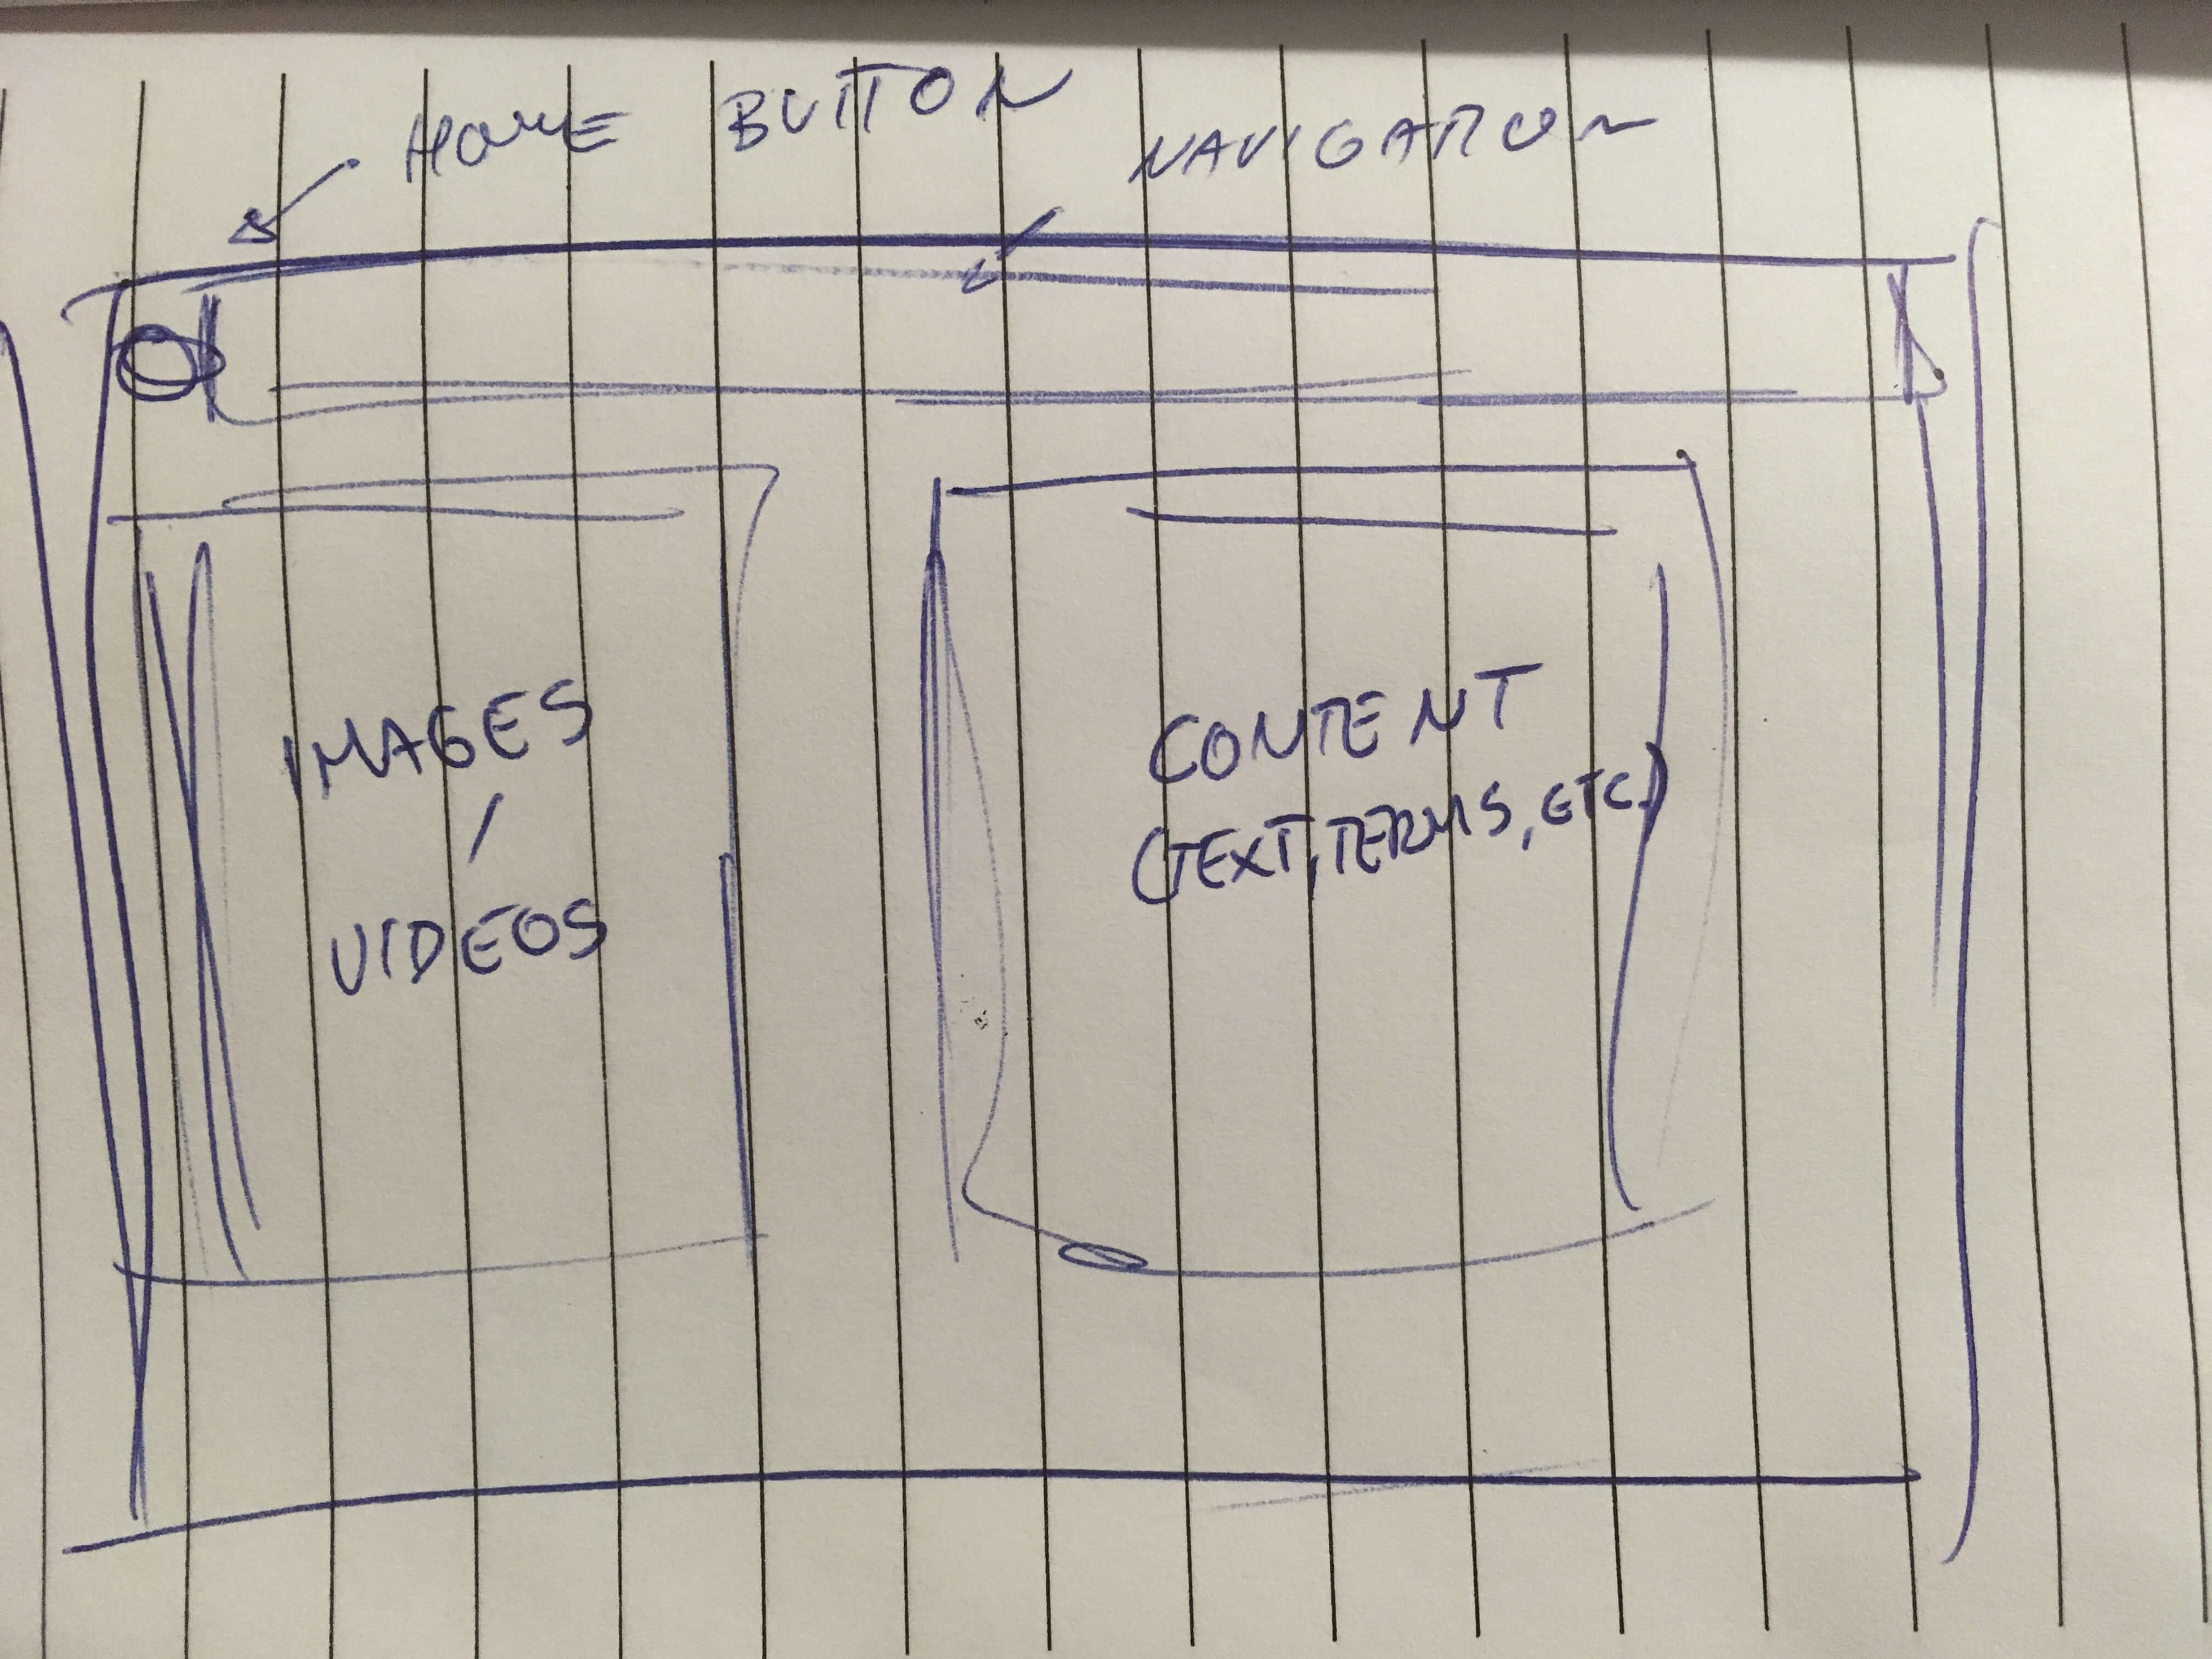 HOME BUTTON
NAVIGATION
IMAGES
/
VIDEOS
CONTENT
(TEXT, TERMS, ETC.)